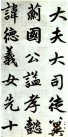 大夫大司徒冀
蘭國公謚孝懿
諱德義女先十